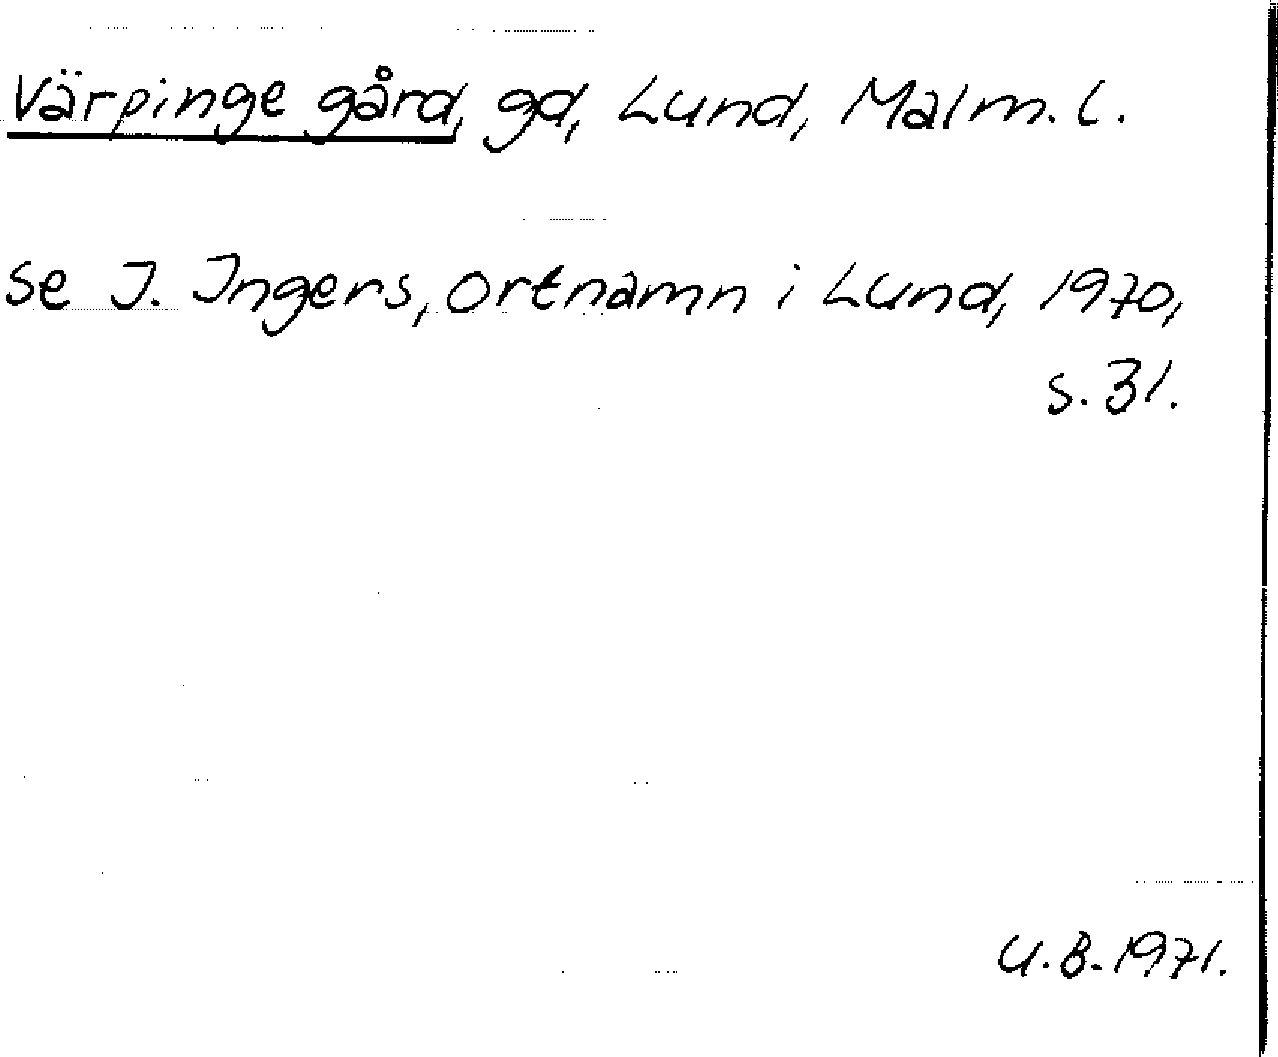 Värpinge gård, gd, Lund, Malm. l.
se I. Ingers, Ortnamn i Lund, 1970,
s. 31.
U.B. 1971.